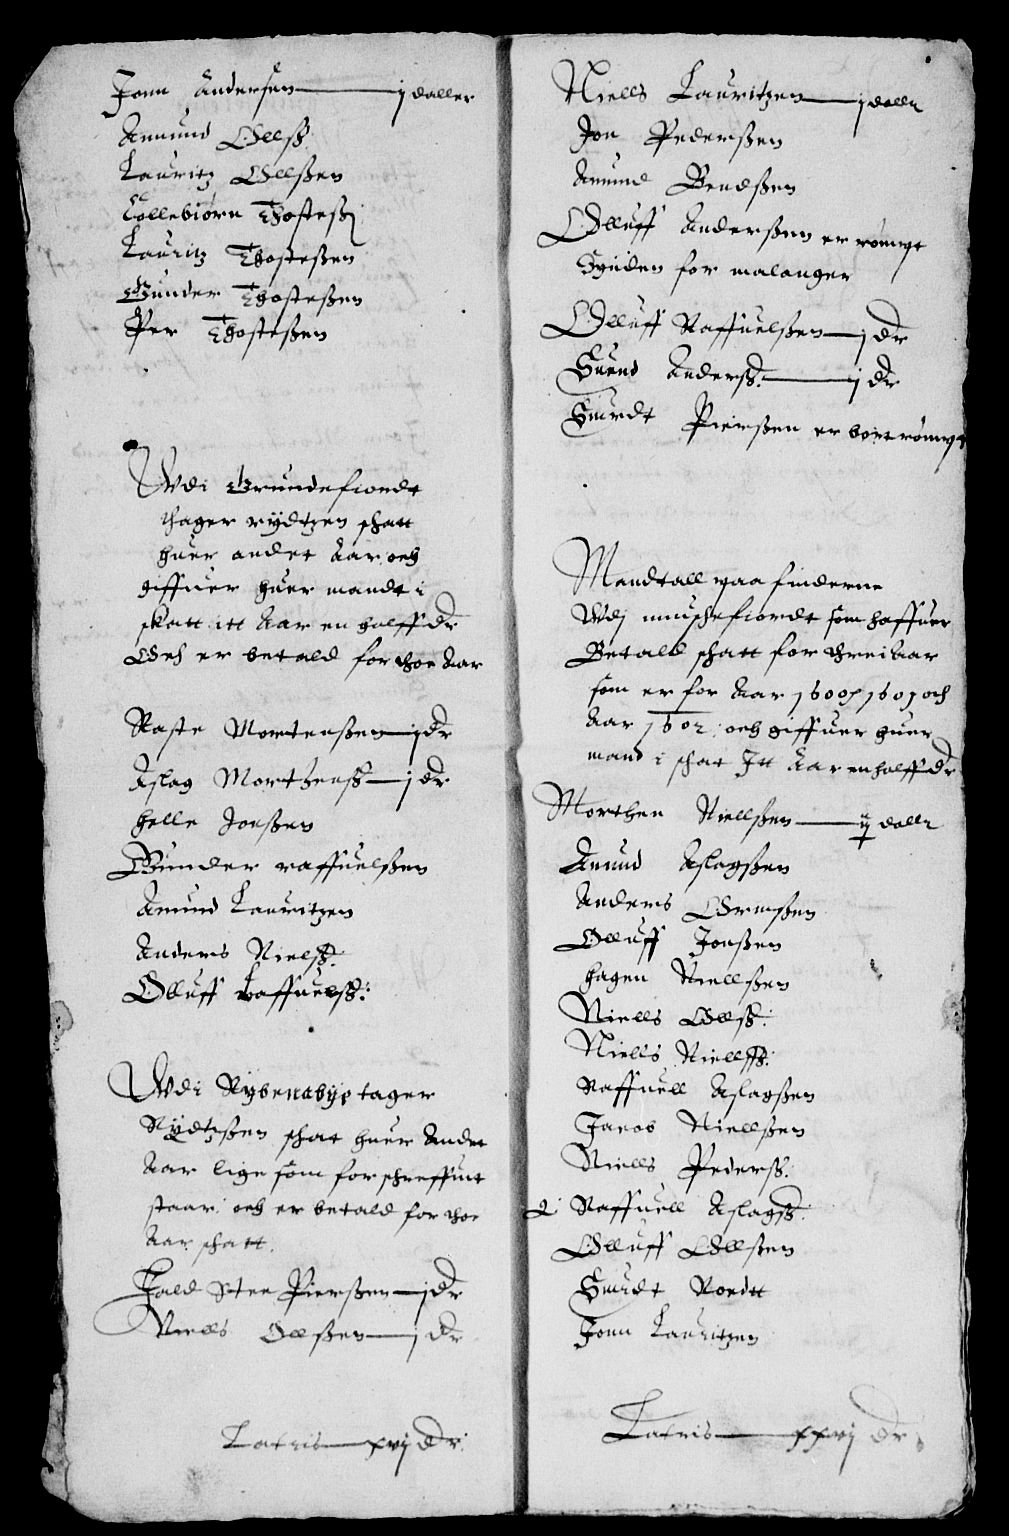 Jonn Andersen —— j daller
Amund Ollß.
Lauritz Ollßen
Tollebiørn Thosteß.
Lauritz Thosteßen
Gunder Thosteßen
Per Thosteßen
Wdi Grundefiordt
thager rydtzen schatt
huer andet Aar och
giffuer huer mandt i
skatt itt Aar en halff dr
Och er betald for thoe Aar
Raste Mortenßen — j dr
Aslag Mortenß — j dr
Helle Joenßen
Gunder raffuelßen
Amund Lauritzen
Anders Nielß.
Olluff raffuelß:
Wdi tager
Rydtzßen schat huer Andet
Aar lige som forschreffuit
staar och er betald for thoe
Aar schatt.
Fald Pierßen — j dr
Niells Ollßen — j dr
Lateris — xvj dr.
Niells Lauritzen — j daller
Jon Pederßen
Amund Bendßen
Olluff Anderßen er rømpt
Synden for malanger
Olluff Raffuelßen — j dr
Suend Anderß. — j dr
Siurdt Pierßen er bort rømpt
Mandtall paa finderne
Wdj fiordt som haffuer
Betald schatt for threi Aar
som er for Aar 1600, 1601 och
Aar 1602. och giffuer huer
mand i schat Itt Aar en halff dr
Morthen Nielßen — ij daller
Amund Aslagßen
Anders Ormßen
Olluff Jonßen
Hagen Niellßen
Niells Ollß.
Niells Niellß.
Raffuell Aslagßen
Jacob Niellßen
Niells Pederß.
Raffuell Aslagß.
Olluff Ollßen
Siurdt Roedtt
Jonn Lauritzen
Lateris — xxvj dr